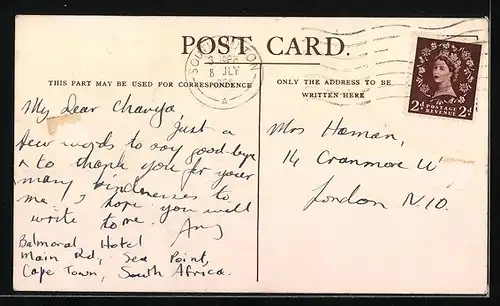 POST CARD.
THIS PART MAY BE USED FOR CORRESPONDENCE
ONLY THE ADDRESS TO BE
WRITTEN HERE
8 JLY
A
POSTAGE
REVENUE
2d 2d
My dear
Just a
few words to say good-bye
& to thank you for your
many kindnesses to
me. I hope you will
write to me. Amy
Balmoral Hotel
Main Rd, Sea Point,
Cape Town, South Africa.
Mrs Haman,
14 Cranmore W
London N10.